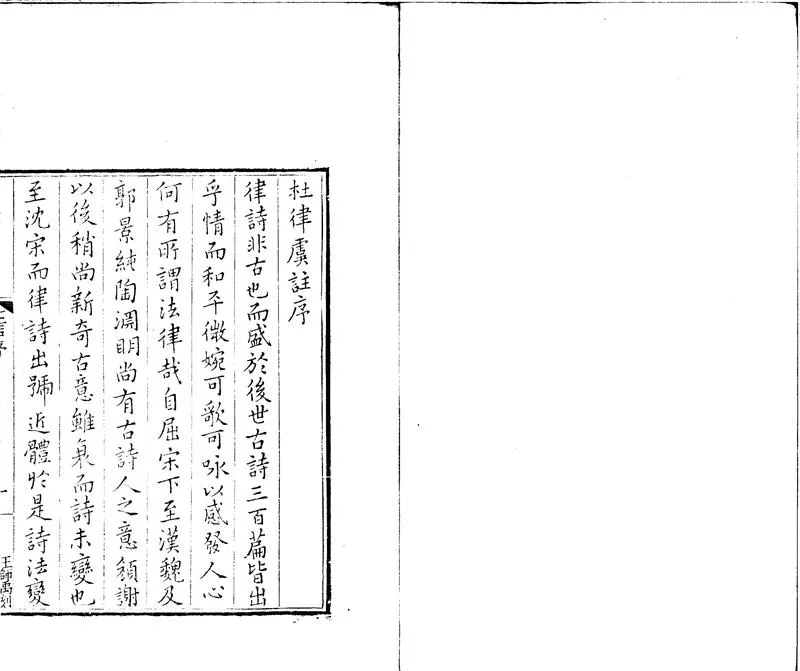 杜律虞註序
律詩非古也而盛於後世古詩三百篇皆出
乎情而和平微婉可歌可咏以感發人心
何有所謂法律哉自屈宋下至漢魏及
郭景純陶淵明尚有古詩人之意顏謝
以後稍尚新奇古意雖衰而詩未變也
至沈宋而律詩出號近體於是詩法變
王師禹刻